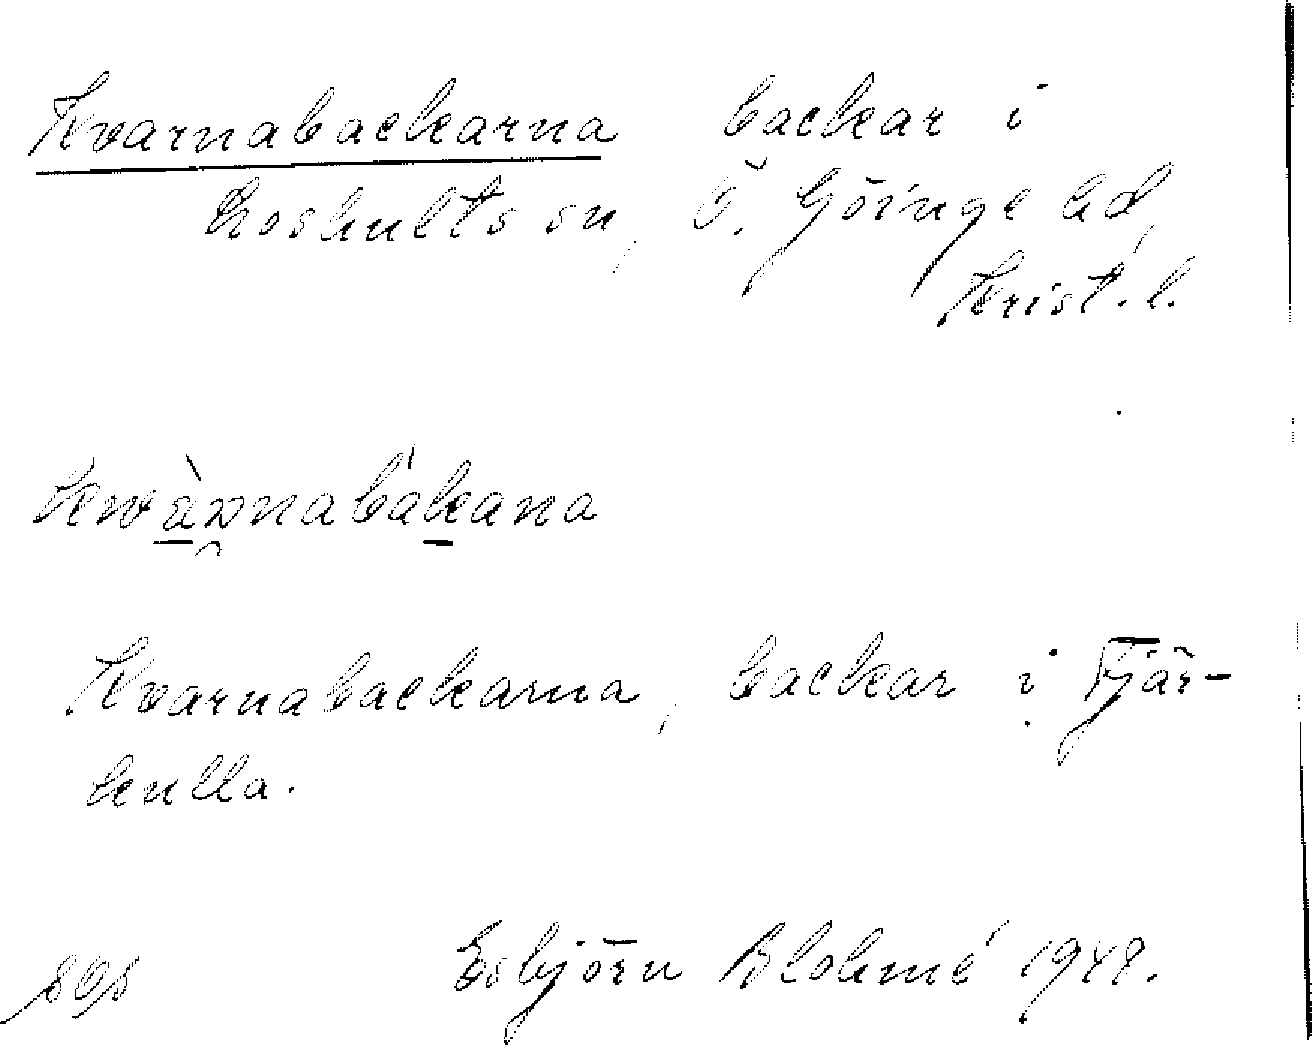 Kvarnabackarna backar i
Loshults sn, Ö. Göinge hd,
Krist. l.
kwànnabákana
Kvarnabackarna, backar i Tjär-
kulla.
Esbjörn Blohmé 1948.